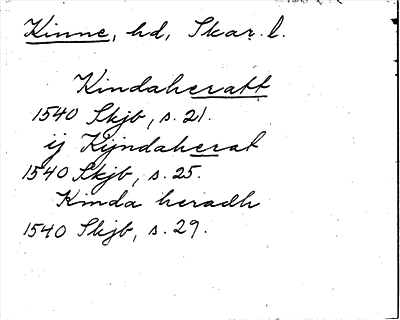 Kinne, hd, Skar. l.
Kindaheratt
1540 Skjb, s. 21.
ij Kijndaherat
1540 Skjb, s. 25.
Kinda heradh
1540 Skjb, s. 29.